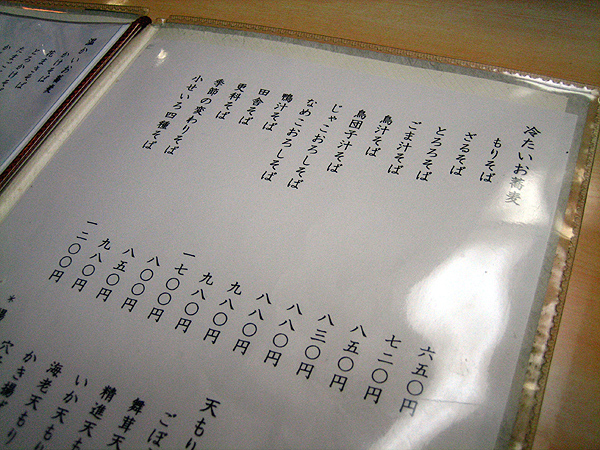 冷たいお蕎麦
もりそば 六五〇円
ざるそば 七二〇円
とろろそば 八五〇円
ごま汁そば 八三〇円
鳥汁そば 八八〇円
鳥団子汁そば 八八〇円
じゃこおろしそば 九八〇円
なめこおろしそば 九八〇円
鴨汁そば 一七〇〇円
田舎そば 八〇〇円
更科そば 八五〇円
季節の変わりそば 九八〇円
小せいろ四種そば 一二〇〇円
天もり
ごぼ
舞茸天
精進天も
いか天もり
海老天もり
かき揚げ
穴
温かいお蕎麦
かけそば